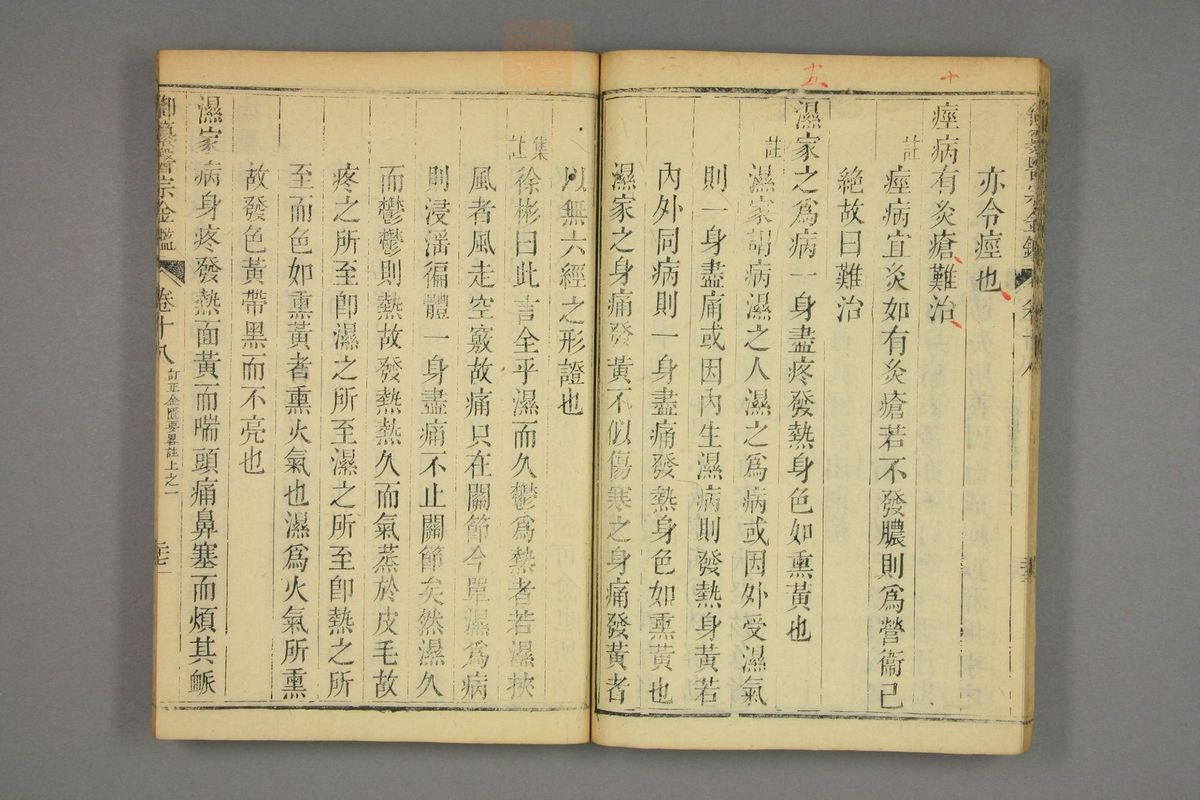 十
十五
亦令痙也
痙病有灸瘡難治
註
痙病宜灸如有灸瘡若不發膿則爲營衞已
絶故曰難治
濕家之爲病一身盡疼發熱身色如熏黃也
註
濕家謂病濕之人濕之爲病或因外受濕氣
則一身盡痛或因內生濕病則發熱身黃若
內外同病則一身盡痛發熱身色如熏黃也
濕家之身痛發黃不似傷寒之身痛發黃者
以無六經之形證也
集註
徐彬曰此言全乎濕而久鬱爲熱者若濕挾
風者風走空竅故痛只在關節今單濕爲病
則浸淫徧體一身盡痛不止關節矣然濕久
而鬱鬱則熱故發熱熱久而氣蒸於皮毛故
疼之所至卽濕之所至濕之所至卽熱之所
至而色如熏黃者熏火氣也濕爲火氣所熏
故發色黃帶黑而不亮也
濕家病身疼發熱面黃而喘頭痛鼻塞而煩其脈
御纂醫宗金鑑
卷十八
訂正金匱要畧註上之一